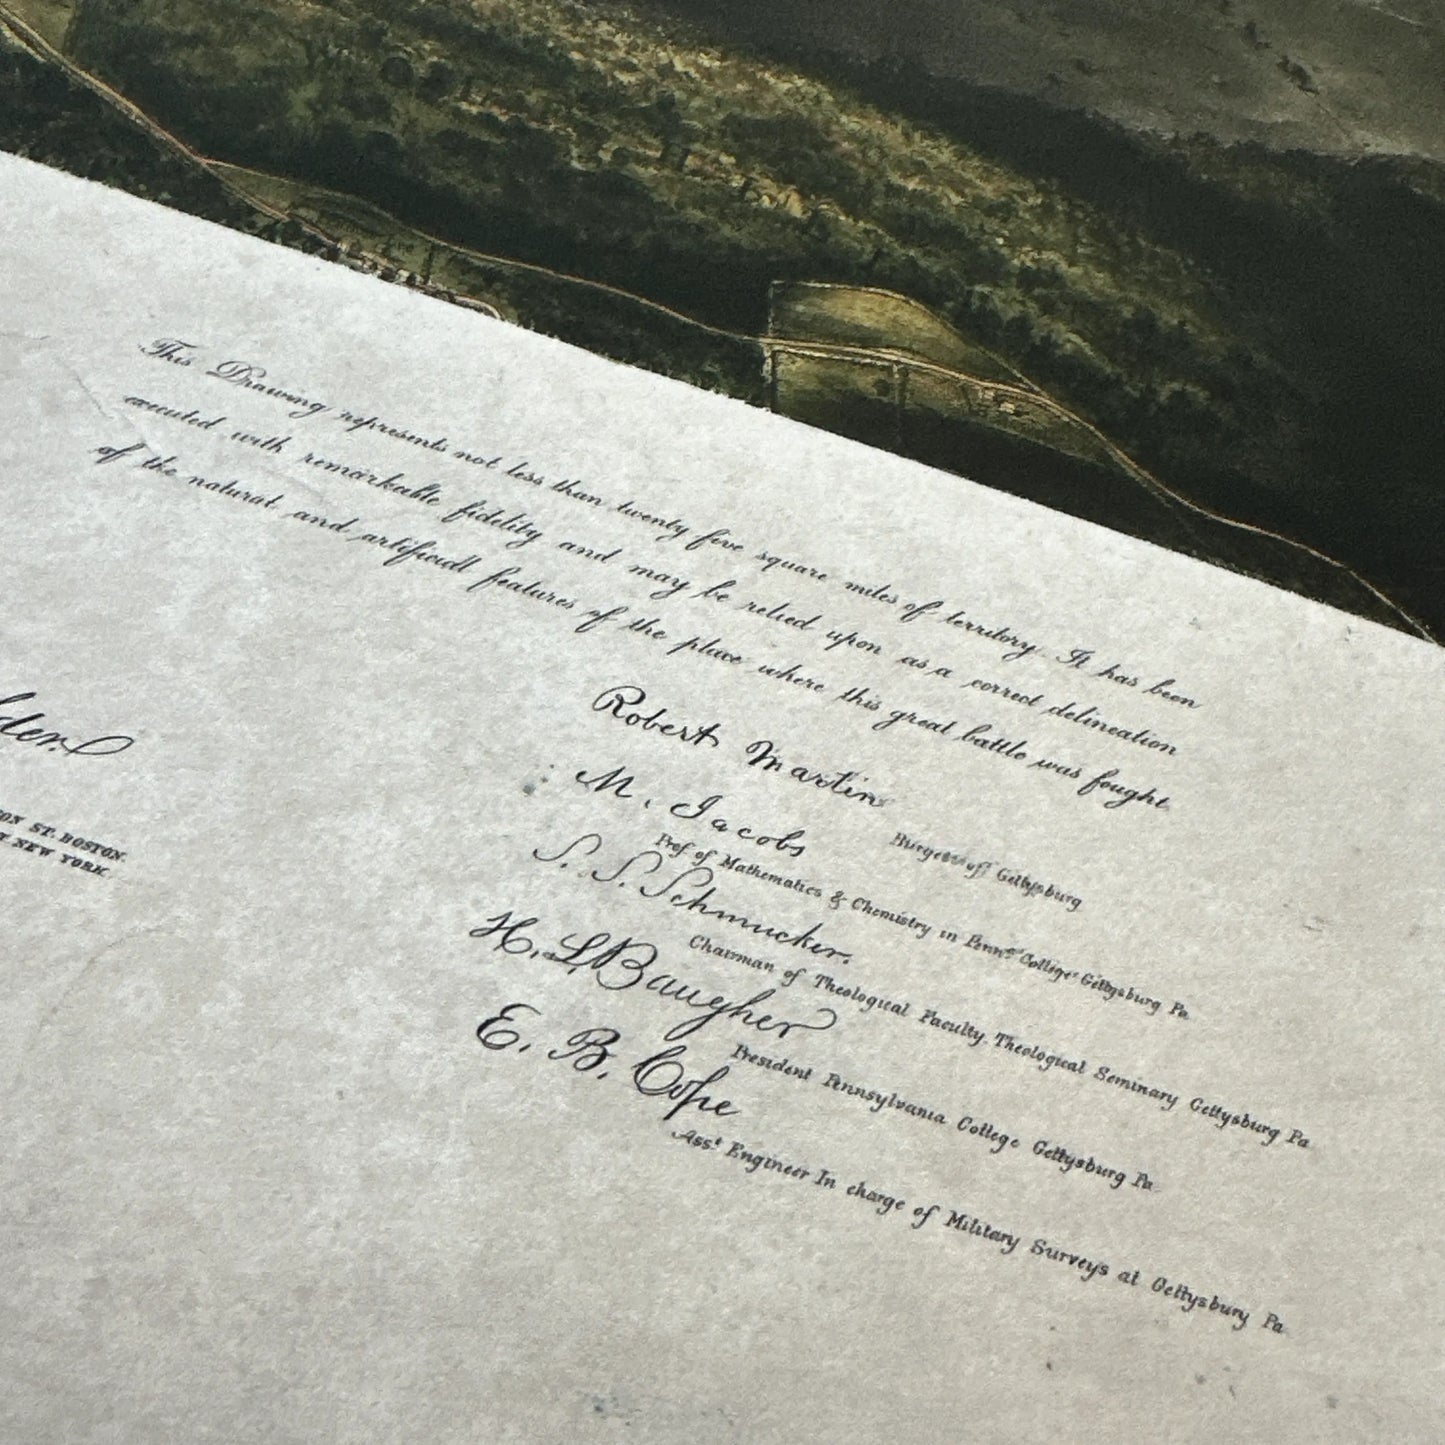 This Drawing represents not less than twenty five square miles of territory. It has been
executed with remarkable fidelity and may be relied upon as a correct delineation
of the natural and artificial features of the place where this great battle was fought.
Robert Martin
Burgess of Gettysburg
M. Jacobs
Prof of Mathematics & Chemistry in Penna College Gettysburg Pa
S. S. Schmucker.
Chairman of Theological Faculty, Theological Seminary Gettysburg Pa
H. L. Baugher
President Pennsylvania College Gettysburg Pa
E. B. Cope
Asst Engineer In charge of Military Surveys at Gettysburg Pa
ST. BOSTON.
NEW YORK.